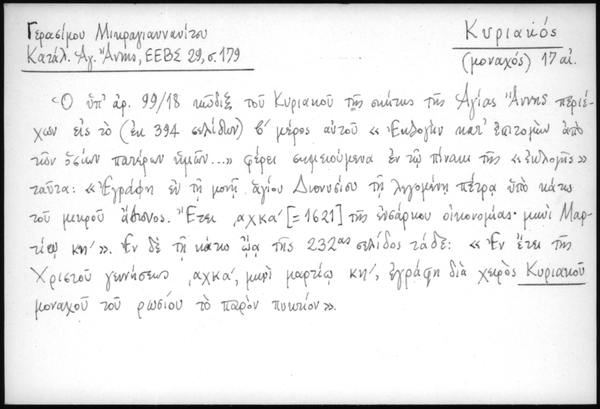 Γερασίμου Μικραγιαννανίτου
Κατάλ. Ἁγ. Ἄννης, ΕΕΒΣ 29, σ. 179
Κυριακός
(μοναχός) 17 αἰ.
Ὁ ὑπ' ἀρ. 99/18 κῶδιξ τοῦ Κυριακοῦ τῆς σκήτης τῆς Ἁγίας Ἄννης περιέ-
χων εἰς τὸ (ἐκ 394 σελίδων) β΄ μέρος αὐτοῦ « Ἐκλογὴν κατ' ἐπιτομὴν ἀπὸ
τῶν ὁσίων πατέρων ἡμῶν...» φέρει σημειούμενα ἐν τῷ πίνακι τῆς «Ἐκλογῆς»
ταῦτα: « Ἐγράφη ἐν τῇ μονῇ ἁγίου Διονυσίου τῇ λεγομένῃ πέτρᾳ ὑπὸ κάτω
τοῦ μικροῦ ἄθωνος. Ἔτει ͵αχκα΄ [= 1621] τῆς ἐνσάρκου οἰκονομίας· μηνὶ Μαρ-
τίῳ κη΄ ». Ἐν δὲ τῇ κάτω ᾤᾳ τῆς 232ας σελίδος τάδε: « Ἐν ἔτει τῆς
Χριστοῦ γεννήσεως ͵αχκα΄, μηνὶ μαρτίῳ κη΄, ἐγράφη διὰ χειρὸς Κυριακοῦ
μοναχοῦ τοῦ ρωσίου τὸ παρὸν πυκτίον ».